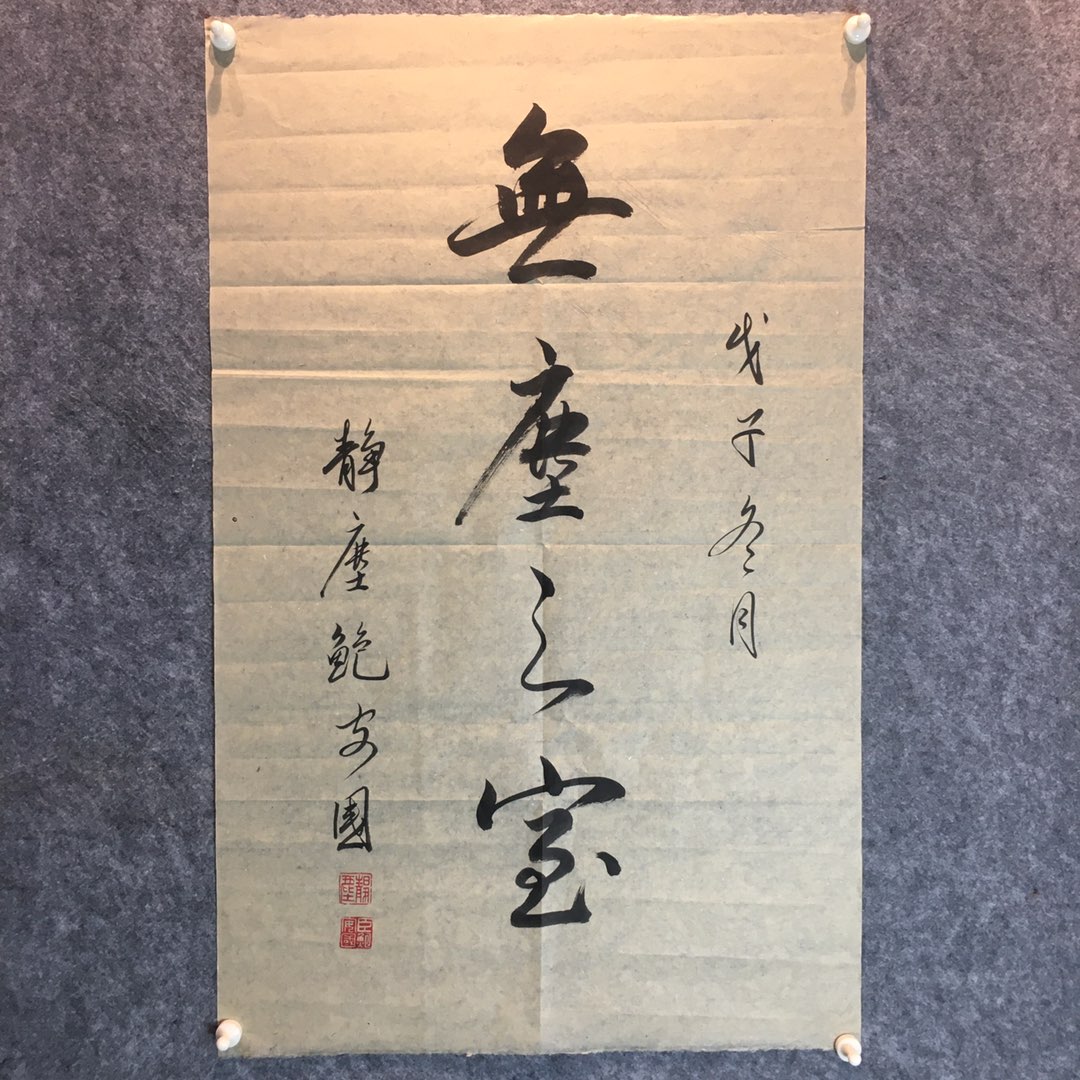 戊子冬月
無塵之室
静塵鮑安國
静塵